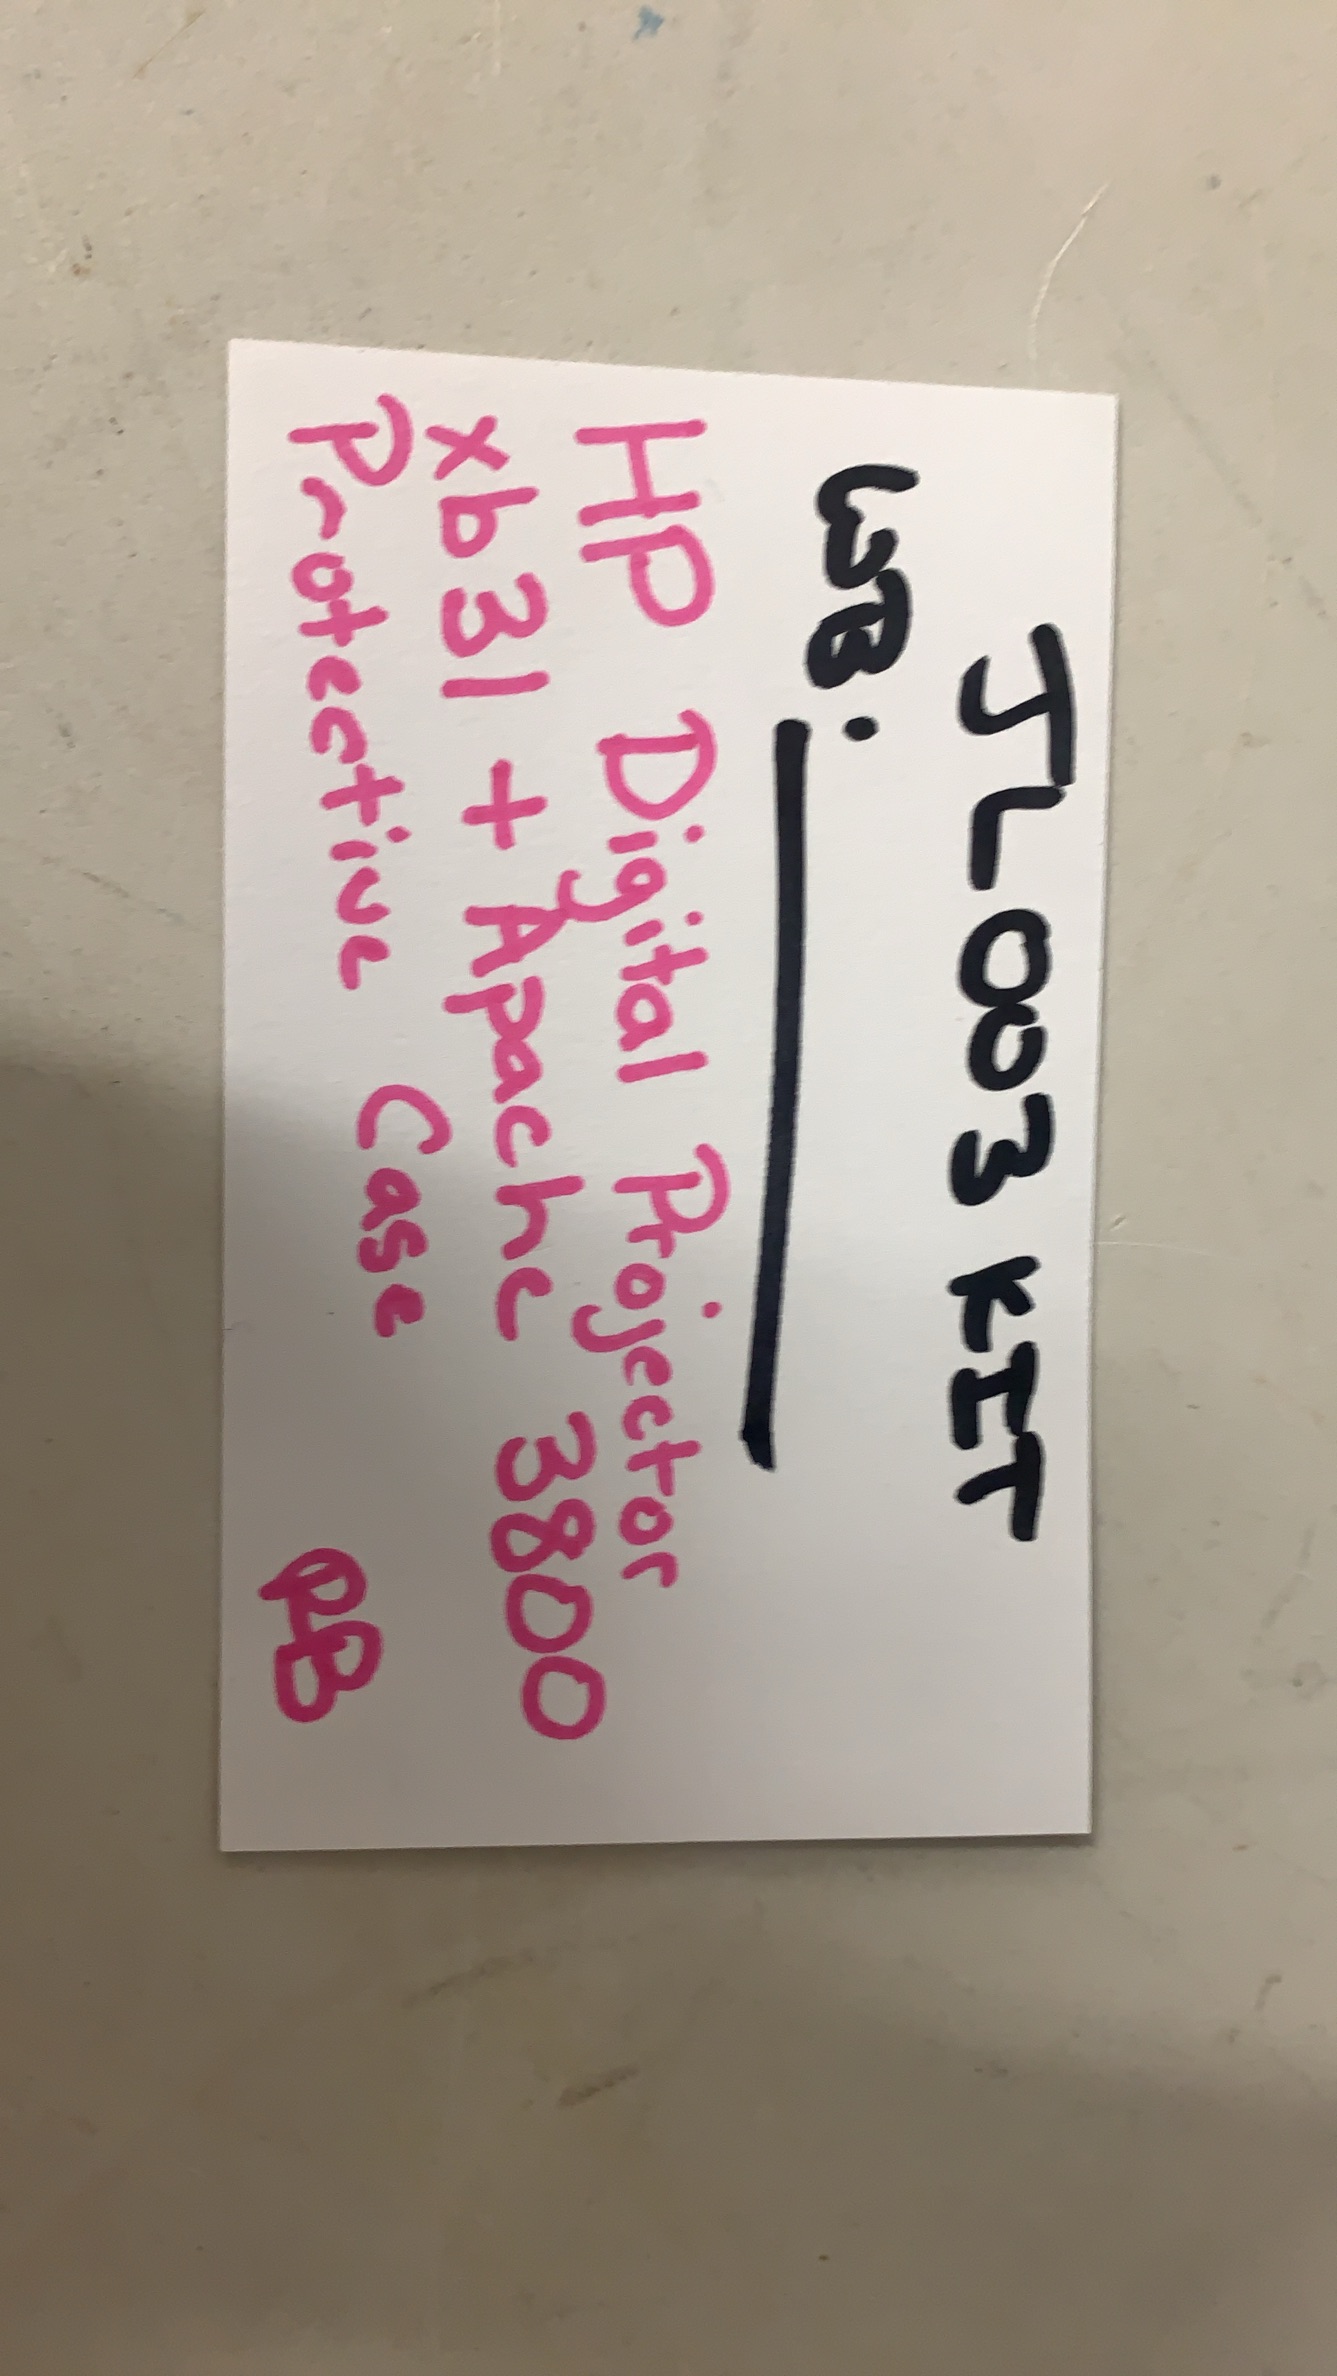 JL003 KIT
WB:
HP Digital Projector
xb31 + Apache 3800
Protective Case
RB